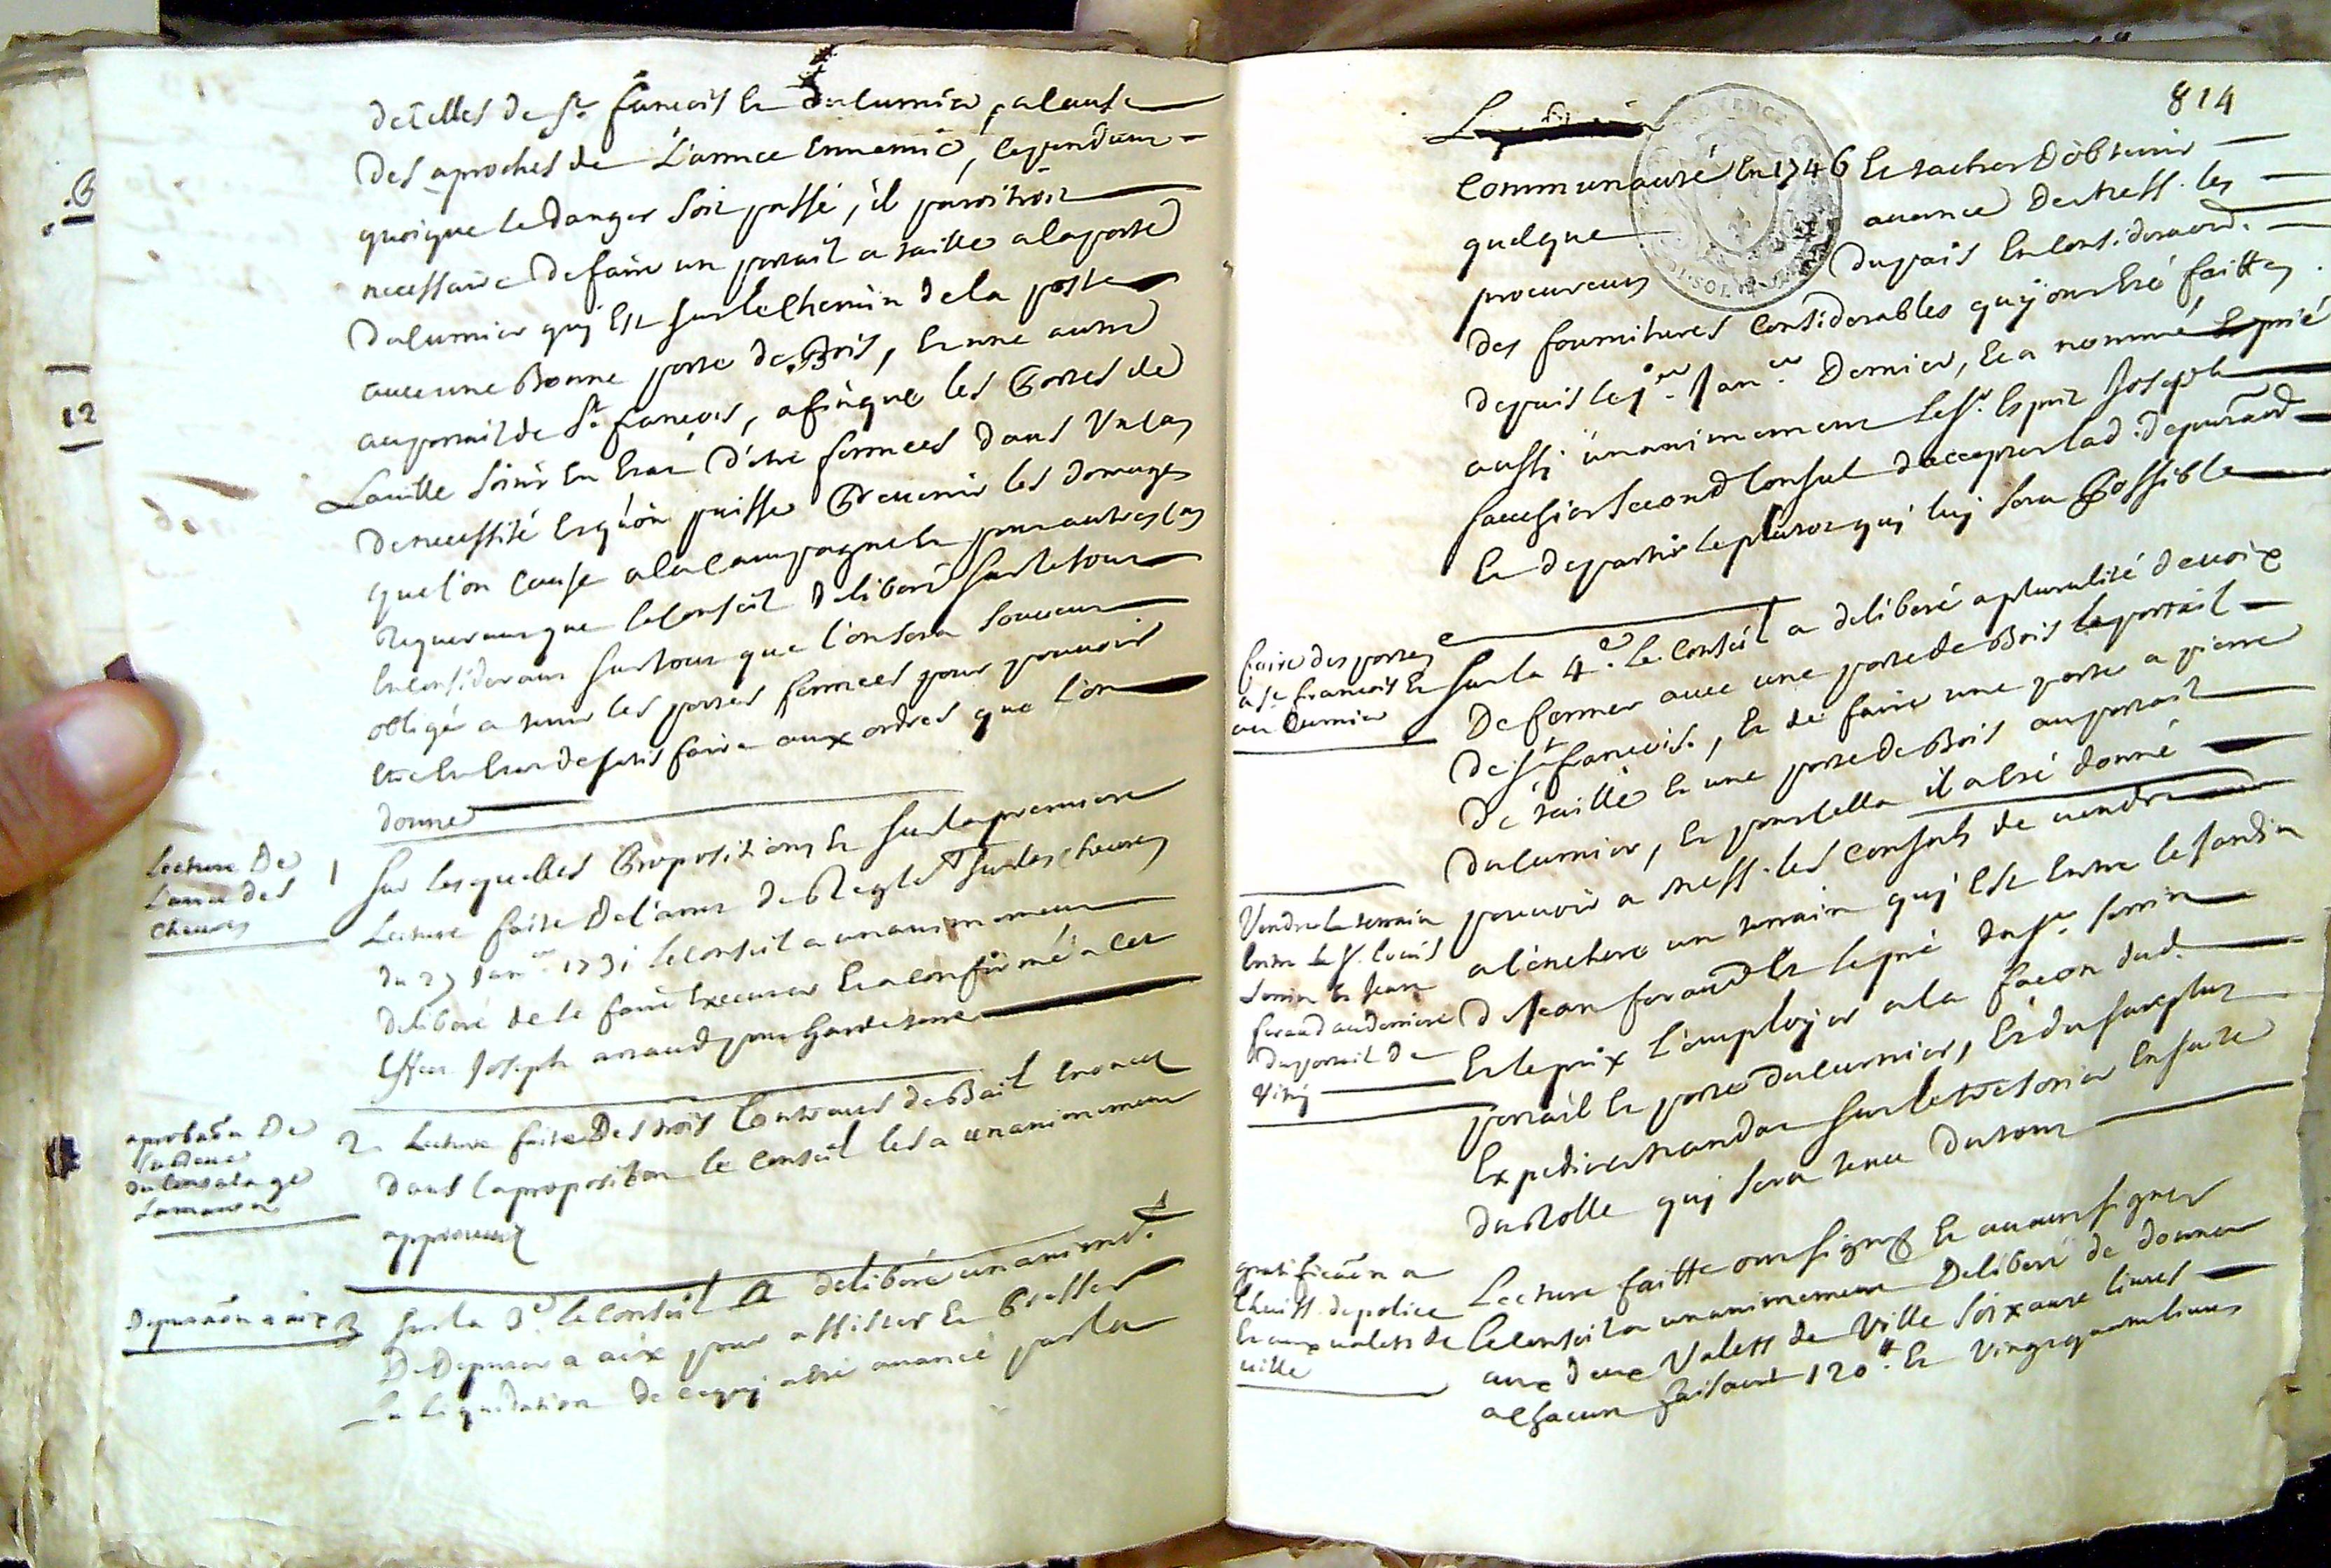 de celles de St. francois et du lumier, a cause
des aproches de L'armée Ennemie, cependant
quoique le danger soit passé, il paroitroit
necessaire de faire un portail a taille a la porte
du lumier quj Est sur le Chemin de la poste
avec une Bonne porte de Bois, Et une autre
au portail de St. francois, afin que les Portes de
La ville soint En Etat d'etre fermées dans Un cas
de necessité Et qu'on puisse Prevenir les domages
que l'on Cause a la Campagne Et pour autres cas
Requerant que le Conseil deliberé sur le tout
En considerant surtout que l'on sera souvent
obligé a tenir les portes fermees pour pouvoir
Etre En Etat de satisfaire aux ordres que l'on
donne
Lecture De
L'arret des
Chevres
1 sur lesquelles Propositions Et sur la premiere
Lecture faite De l'arret de Reglet sur les chevres
du 27 Janer. 1731 le Conseil a unanimement
deliberé de le faire Executer Et a confirmé a cet
Effet Joseph arnaud pour Garde terre
aprobaõn De
du
2 Lecture faite Des trois Contracts de Bail Enoncez
dans la proposition le Conseil les a unanimement
approuvez
Deputaõn a aix
3 sur la 3e. le Conseil a deliberé unanimt.
De Deputer a aix pour assister Et Presser
La Liquidation de ce quj a eté avancé par la
814
Communauté En 1746 Et tacher D'obtenir
quelque avance De Mess. les
procureurs Du pais En Considerãõn.
des fournitures Considerables quj ont Eté faittes
depuis le jer. Janer. Dernier, Et a nommé Et prié
aussi unanimement le Sr. Esprit Joseph
second Consul d'accepter lad. deputãõn
Et de partir le plutot quj luj sera Possible
faire des portes
a St. francois Et
au Lumier
sur la 4e. le Conseil a deliberé a pluralité de voix
De fermer avec une porte de Bois le portail
de St. francois, Et de faire une porte a pierre
De taille Et une porte de Bois au portail
du lumier, Et pour cella il a eté donné
pouvoir a Mess. les Consuls de vendre
a l'enchere un terrain quj Est Entre le Jardin
de Jean feraud Et le pré du Sr. sorrin
Et le prix l'employer a la facon dud.
portail Et porte du lumier, Et du surplus
Expedier Mandat sur le Tresorier Ensuite
du Rolle quj sera tenu du tout
Vendre le terrain
Entre le Sr. Louis
sorrin Et Jean
feraud au derriere
du portail de
Vitry
gratificãõn a
L'huiss. de police
Et aux valets de
ville
Lecture faitte ont signé Et avant signer
le Conseil a unanimement Deliberé de donner
aux deux Valets de Ville soixante livres
a chacun faisant 120 ₶. Et Vingt quatre livres